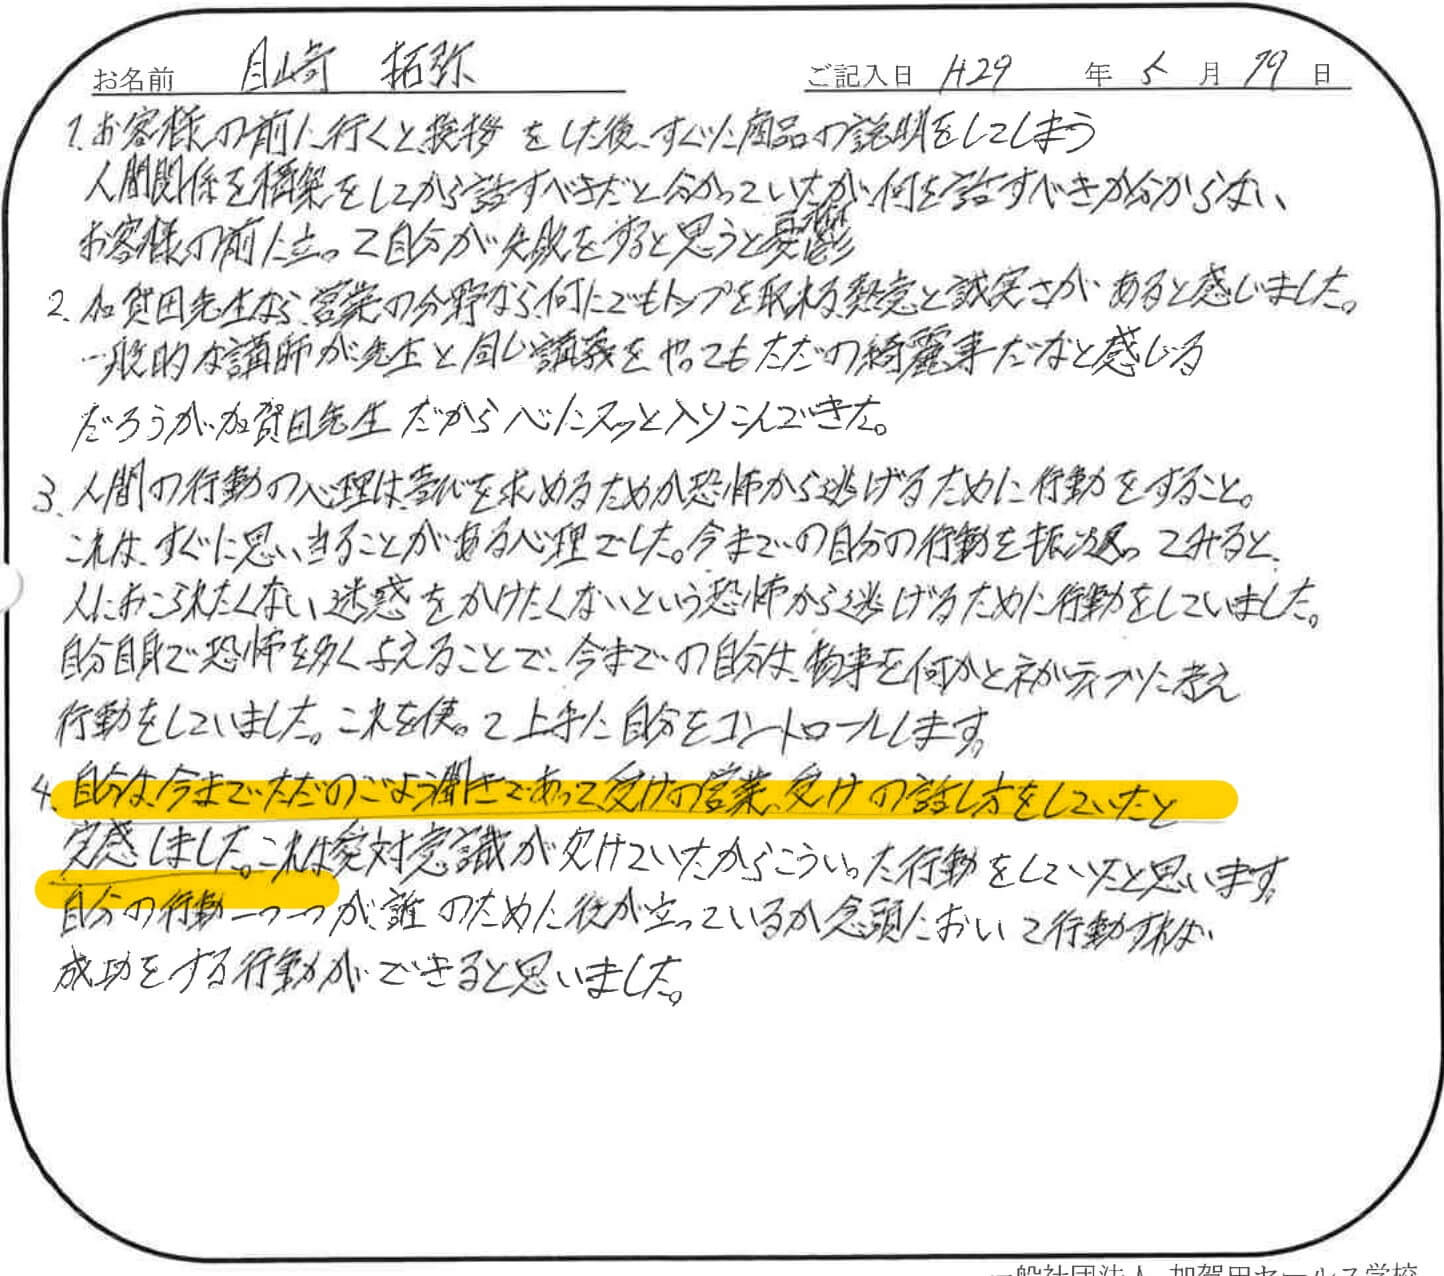 お名前 月崎 拓弥 ご記入日 H29 年 5 月 19 日
1. お客様の前に行くと、挨拶をした後、すぐに商品の説明をしてしまう
人間関係を構築をしてから話すべきだと分かっていたが、何を話すべきか分からない、
お客様の前に立って自分が失敗をすると思うと憂鬱
2. 加賀田先生なら、営業の分野なら、何にでもトップを取れる熱意と誠実さがあると感じました。
一般的な講師が先生と同じ講義をやってもただの綺麗事だなと感じる
だろうが、加賀田先生だから心にスッと入りこんできた。
3. 人間の行動の心理は、喜びを求めるためか恐怖から逃げるために行動をすること。
これは、すぐに思い当ることがある心理でした。今までの自分の行動を振り返ってみると、
人におこられたくない、迷惑をかけたくないという恐怖から逃げるために行動をしていました。
自分自身で恐怖を多く与えることで、今までの自分は、物事を何かとネガティブに考え
行動をしていました。これを使って上手に自分をコントロールします。
4. 自分は、今までただのごよう聞きであって、受けの営業、受けの話し方をしていたと
実感しました。これは、対意識が欠けていたからこういった行動をしていたと思います。
自分の行動一つ一つが、誰のために役が立っているか念頭において行動すれば、
成功をする行動ができると思いました。
一般社団法人 加賀田セールス学校